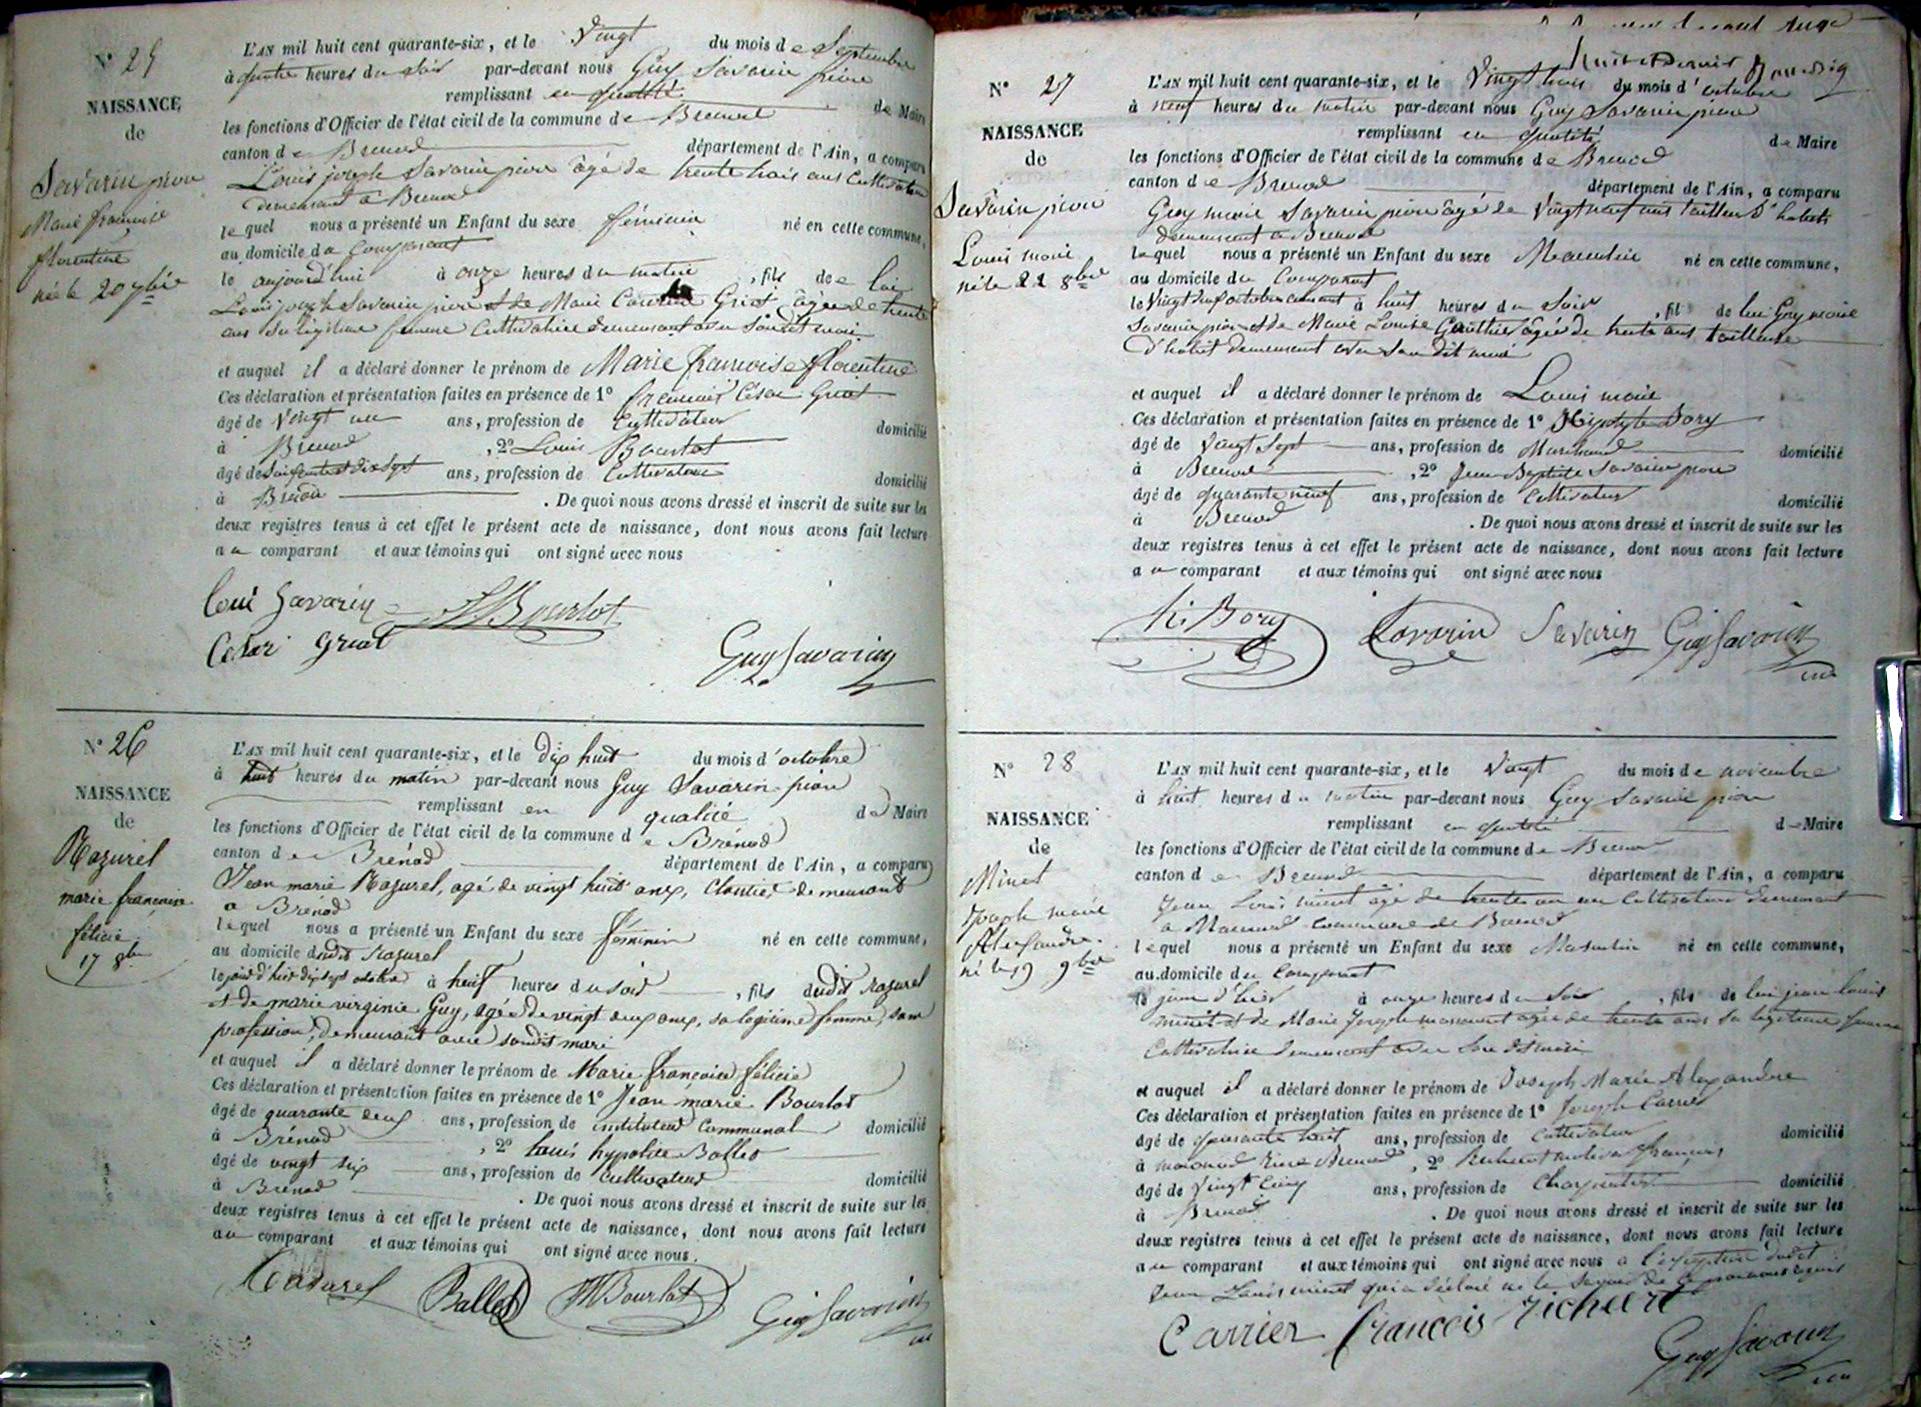 N° 25
NAISSANCE
de
Savarin pion
Marie françoise
florentine
née le 20 7bre
L'AN mil huit cent quarante-six, et le Vingt du mois de Septembre
à quatre heures du soir par-devant nous Guy Savarin pion
remplissant en qualité de Maire
les fonctions d'Officier de l'état civil de la commune de Brenod
canton de Brenod département de l'Ain, a comparu
Louis joseph Savarin pion âgé de trente trois ans Cultivateur
demeurant a Brenod
lequel nous a présenté un Enfant du sexe féminin né en cette commune,
au domicile du Comparant
le aujourd'hui à onze heures du matin, fils de lui
Louis joseph Savarin pion et de Marie Griot âgée de trente
ans sa légitime femme Cultivatrice demeurant avec son dit mari
et auquel il a déclaré donner le prénom de Marie françoise florentine
Ces déclaration et présentation faites en présence de 1° César Griot
âgé de Vingt un ans, profession de Cultivateur domicilié
à Brenod, 2° Louis Bourlot
âgé de Soixante et dix Sept ans, profession de Cultivateur domicilié
à Brenod . De quoi nous avons dressé et inscrit de suite sur les
deux registres tenus à cet effet le présent acte de naissance, dont nous avons fait lecture
au comparant et aux témoins qui ont signé avec nous
Loui Savarin Bourlot
Cesar griot
Guy Savarin
N° 26
NAISSANCE
de
Mazurel
marie françoise
félicie
17 8bre
L'AN mil huit cent quarante-six, et le dix huit du mois d'octobre
à huit heures du matin par-devant nous Guy Savarin pion
remplissant en qualité de Maire
les fonctions d'Officier de l'état civil de la commune de Brénod
canton de Brénod département de l'Ain, a comparu
Jean marie Mazurel, agé de vingt huit ans, demeurant
a Brénod
lequel nous a présenté un Enfant du sexe féminin né en cette commune,
au domicile dudit Mazurel
le jour d'hier dix sept octobre à heures du soir, fils dudit Mazurel
et de marie virginie Guy, agée de vingt deux ans, sa légitime femme, sans
profession, demeurant avec sondit mari
et auquel il a déclaré donner le prénom de Marie françoise félicie
Ces déclaration et présentation faites en présence de 1° Jean marie Bourlot
âgé de quarante deux ans, profession de instituteur Communal domicilié
à Brénod, 2° Louis hypolite Ballet
âgé de vingt six ans, profession de Cultivateur domicilié
à Brénod . De quoi nous avons dressé et inscrit de suite sur les
deux registres tenus à cet effet le présent acte de naissance, dont nous avons fait lecture
au comparant et aux témoins qui ont signé avec nous.
Mazurel Ballet Bourlot Guy Savarin
N° 27
NAISSANCE
de
Savarin pion
Louis marie
8bre
L'AN mil huit cent quarante-six, et le Vingt trois du mois d'octobre
à neuf heures du matin par-devant nous Guy Savarin pion
remplissant en qualité de Maire
les fonctions d'Officier de l'état civil de la commune de Brenod
canton de Brenod département de l'Ain, a comparu
Guy marie Savarin pion âgé de Vingt neuf ans tailleur d'habits
demeurant a Brenod
lequel nous a présenté un Enfant du sexe Masculin né en cette commune,
au domicile du Comparant
le Vingt octobre courant à huit heures du Soir, fils de lui Guy marie
Savarin pion et de Marie Louise Gauthier âgée de trente ans tailleuse
d'habit demeurant avec son dit mari
et auquel il a déclaré donner le prénom de Louis marie
Ces déclaration et présentation faites en présence de 1° Hipolyte Bory
âgé de Vingt Sept ans, profession de Marchand domicilié
à Brenod, 2° Jean Baptiste Savarin pion
âgé de quarante neuf ans, profession de Cultivateur domicilié
à Brenod . De quoi nous avons dressé et inscrit de suite sur les
deux registres tenus à cet effet le présent acte de naissance, dont nous avons fait lecture
au comparant et aux témoins qui ont signé avec nous
hi. Bory Savarin Savarin Guy Savarin
N° 28
NAISSANCE
de
Minet
Joseph marie
Alexandre
né le 19 9bre
L'AN mil huit cent quarante-six, et le Vingt du mois de novembre
à huit heures du matin par-devant nous Guy Savarin pion
remplissant en qualité de Maire
les fonctions d'Officier de l'état civil de la commune de Brenod
canton de Brenod département de l'Ain, a comparu
Jean Louis minet âgé de trente un ans Cultivateur demeurant
a commune de Brenod
lequel nous a présenté un Enfant du sexe Masculin né en cette commune,
au domicile du Comparant
le jour d'hier à onze heures du Soir, fils de lui jean louis
minet et de Marie Joseph âgée de trente ans sa légitime femme
Cultivatrice demeurant avec son dit mari
et auquel il a déclaré donner le prénom de Joseph Marie Alexandre
Ces déclaration et présentation faites en présence de 1° Joseph Carrier
âgé de quarante huit ans, profession de Cultivateur domicilié
à Brenod, 2° françois
âgé de Vingt Cinq ans, profession de Charpentier domicilié
à Brenod . De quoi nous avons dressé et inscrit de suite sur les
deux registres tenus à cet effet le présent acte de naissance, dont nous avons fait lecture
au comparant et aux témoins qui ont signé avec nous a l'exception dudit
Jean Louis minet qui a déclaré ne le Savoir de ce
Carrier francois richert
Guy Savarin